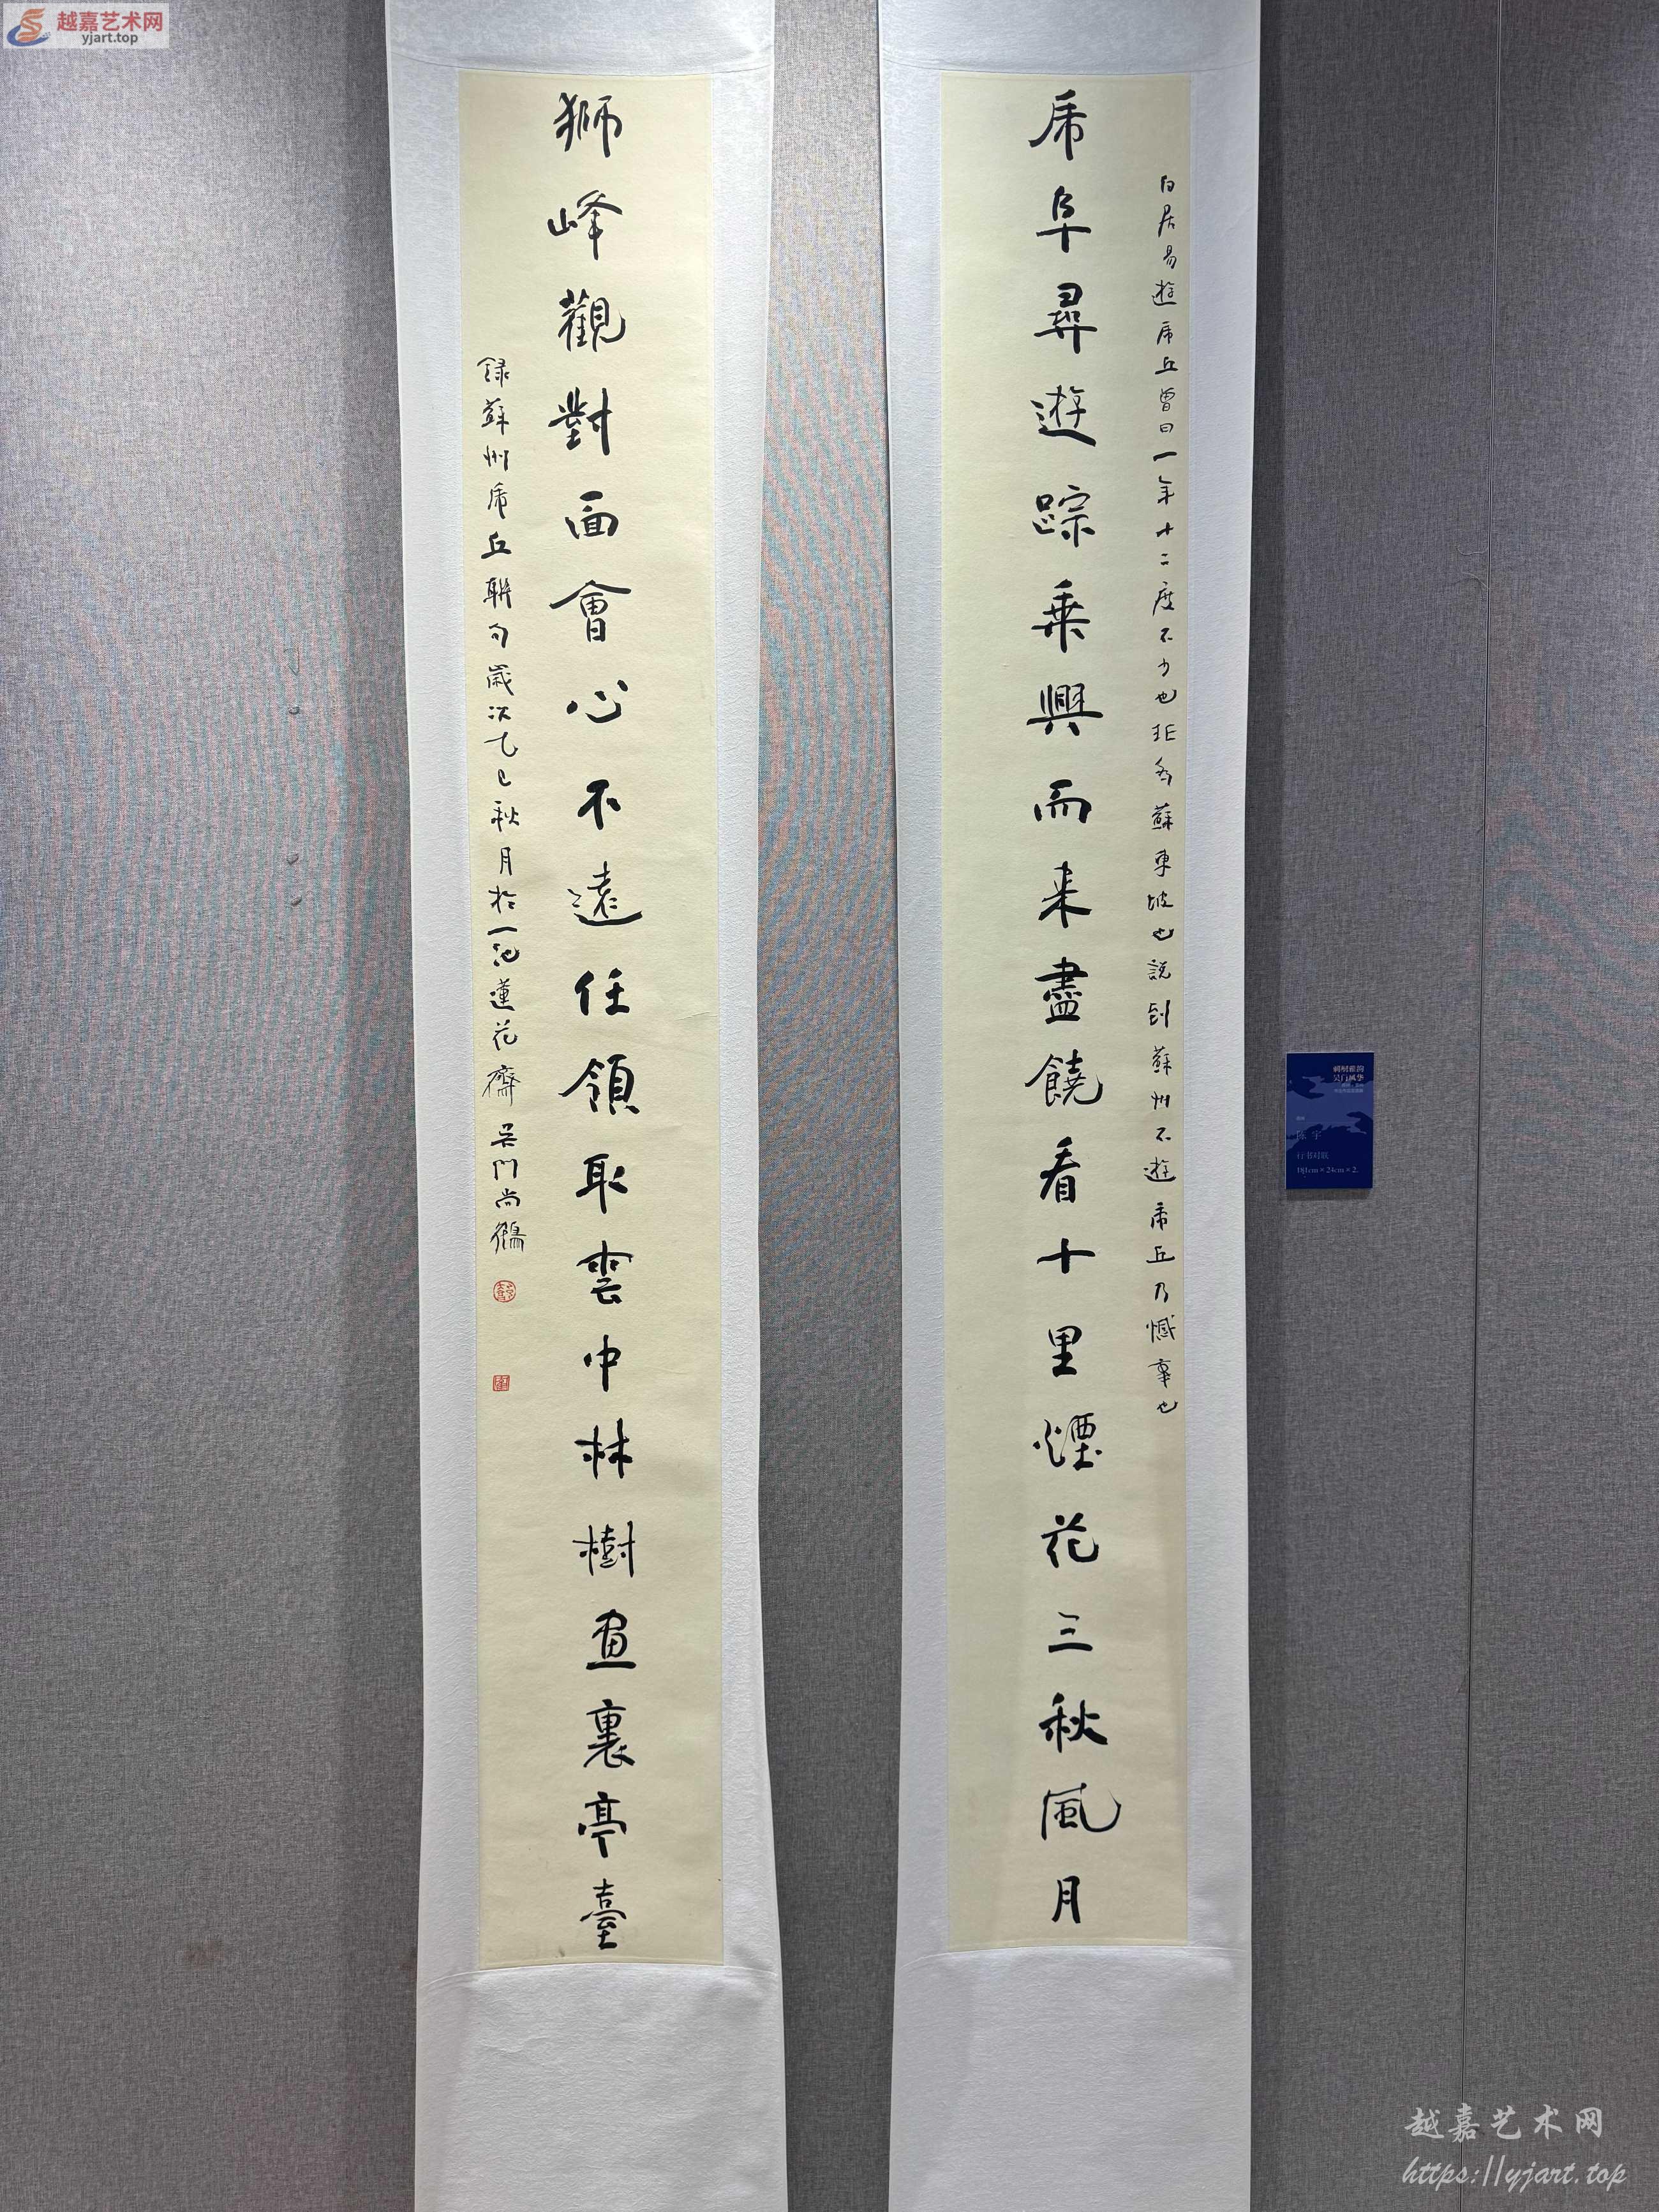 越嘉艺术网
yjart.top
白居易遊虎丘曾曰一年十二度不少也非多蘇東坡也説到蘇州不遊虎丘乃憾事也
虎阜尋遊踪乘興而来盡饒看十里煙花三秋風月
獅峰觀對面會心不遠任領取雲中林樹畫裏亭臺
録蘇州虎丘聯句歲次乙巳秋月於一池蓮花齋 吴門尚鶴
吴门风华
陈宇
行书对联
越嘉艺术网
https://yjart.top